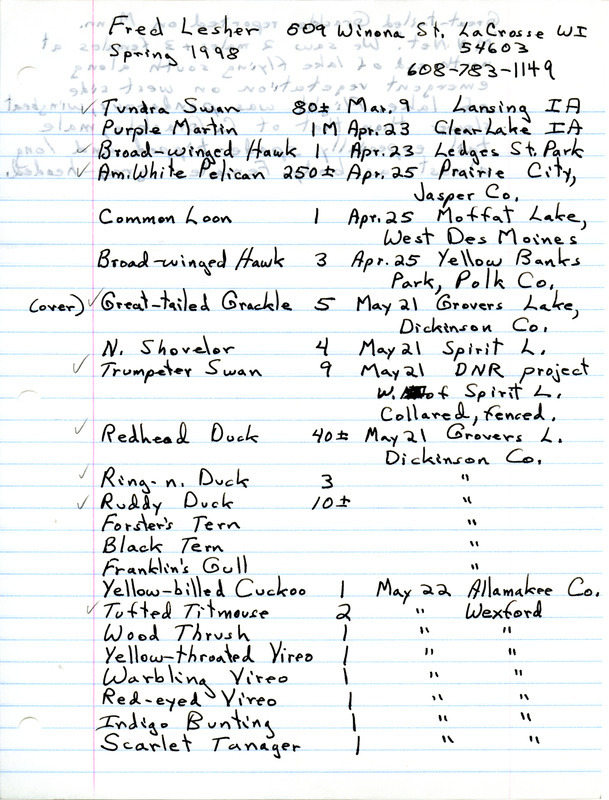 Fred Lesher 509 Winona St. LaCrosse WI
Spring 1998 54603
608-783-1149
✓ Tundra Swan 80± Mar. 9 Lansing IA
Purple Martin 1M Apr. 23 Clear Lake IA
✓ Broad-winged Hawk 1 Apr. 23 Ledges St. Park
✓ Am. White Pelican 250± Apr. 25 Prairie City,
Jasper Co.
Common Loon 1 Apr. 25 Moffat Lake,
West Des Moines
Broad-winged Hawk 3 Apr. 25 Yellow Banks
Park, Polk Co.
(over) ✓ Great-tailed Grackle 5 May 21 Grovers Lake,
Dickinson Co.
N. Shovelor 4 May 21 Spirit L.
✓ Trumpeter Swan 9 May 21 DNR project
W. of Spirit L.
Collared, fenced.
✓ Redhead Duck 40± May 21 Grovers L.
Dickinson Co.
✓ Ring-n. Duck 3 "
✓ Ruddy Duck 10± "
Forster's Tern "
Black Tern "
Franklin's Gull "
Yellow-billed Cuckoo 1 May 22 Allamakee Co.
✓ Tufted Titmouse 2 " Wexford
Wood Thrush 1 " "
Yellow-throated Vireo 1 " "
Warbling Vireo 1 " "
Red-eyed Vireo 1 " "
Indigo Bunting 1 " "
Scarlet Tanager 1 " "